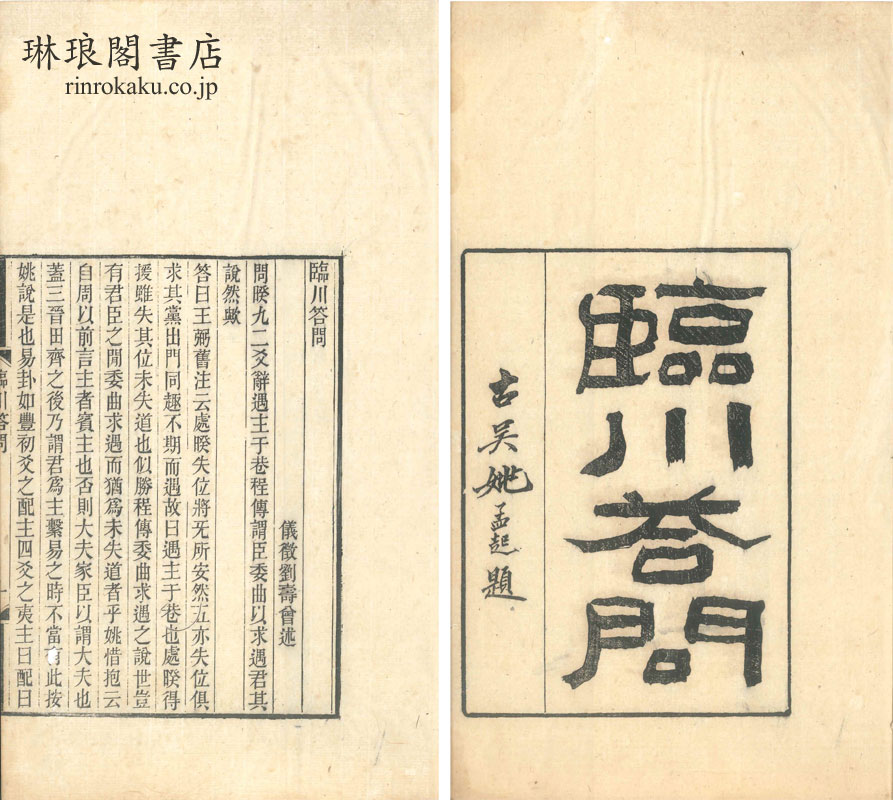 琳琅閣書店
rinrokaku.co.jp
臨川答問
古吴姚孟起題
臨川答問
儀徵劉壽曾述
問睽九二爻辭遇主于巷程傳謂臣委曲以求遇君其
說然歟
答曰王弼舊注云處睽失位將无所安然五亦失位俱
求其黨出門同趣不期而遇故曰遇主于巷也處睽得
援雖失其位未失道也似勝程傳委曲求遇之說世豈
有君臣之閒委曲求遇而猶爲未失道者乎姚惜抱云
自周以前言主者賓主也否則大夫家臣以謂大夫也
蓋三晉田齊之後乃謂君爲主繫易之時不當有此按
姚說是也易卦如豐初爻之配主四爻之夷主曰配曰
臨川答問
一